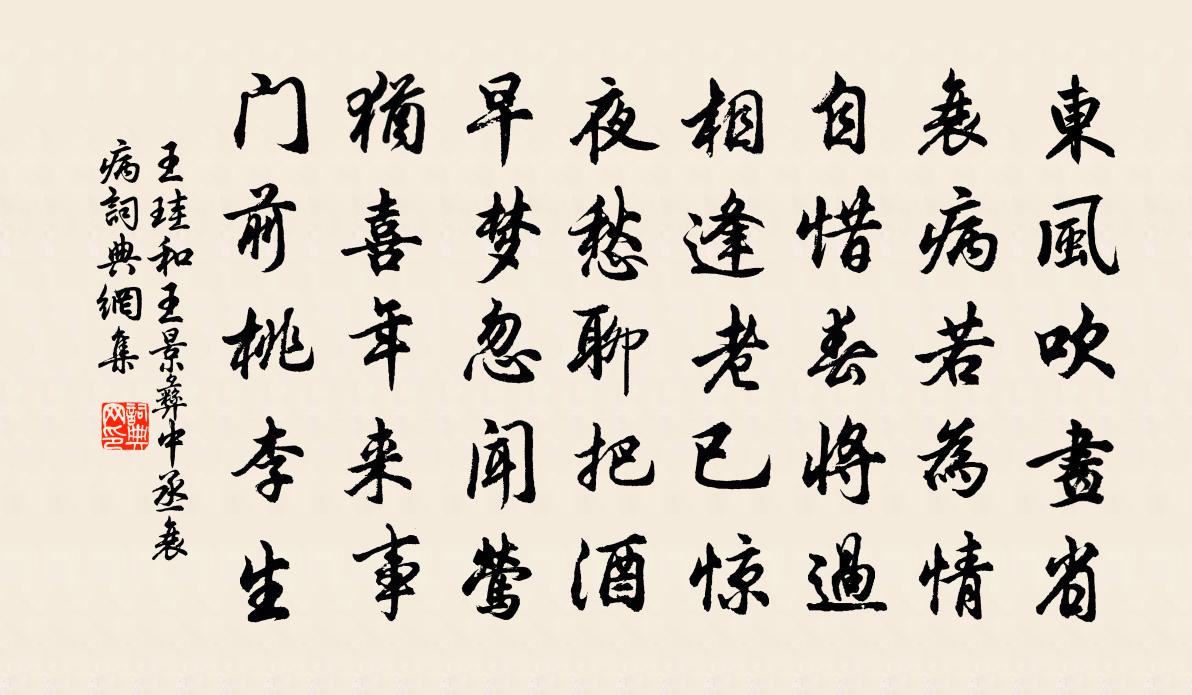 東風吹畫省
衰病若為情
自惜春將過
相逢老已惊
夜愁聊把酒
早梦忽闻莺
猶喜年来事
门前桃李生
王珪和王景彝中丞衰
病詞典網集
詞典
网印